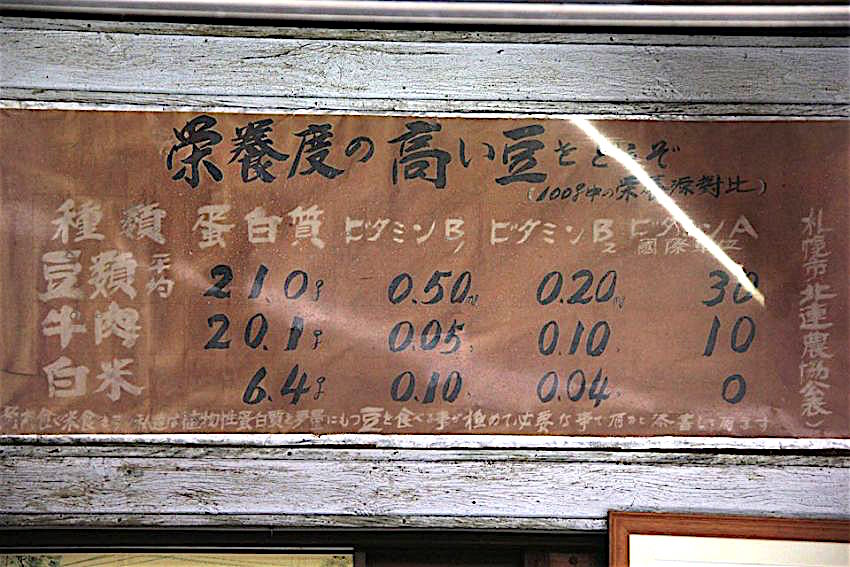 栄養度の高い豆をどうぞ
(100g中の栄養源対比)
種類 蛋白質 ビタミンB1 ビタミンB2 ビタミンA 国際単位
豆類 平均 21.0g 0.50 0.20 30
牛肉 20.1g 0.05 0.10 10
白米 6.4g 0.10 0.04 0
食べ米食 植物性蛋白質を多量にもつ豆を食べる事が極めて必要な事で
札幌市北連農協公表)